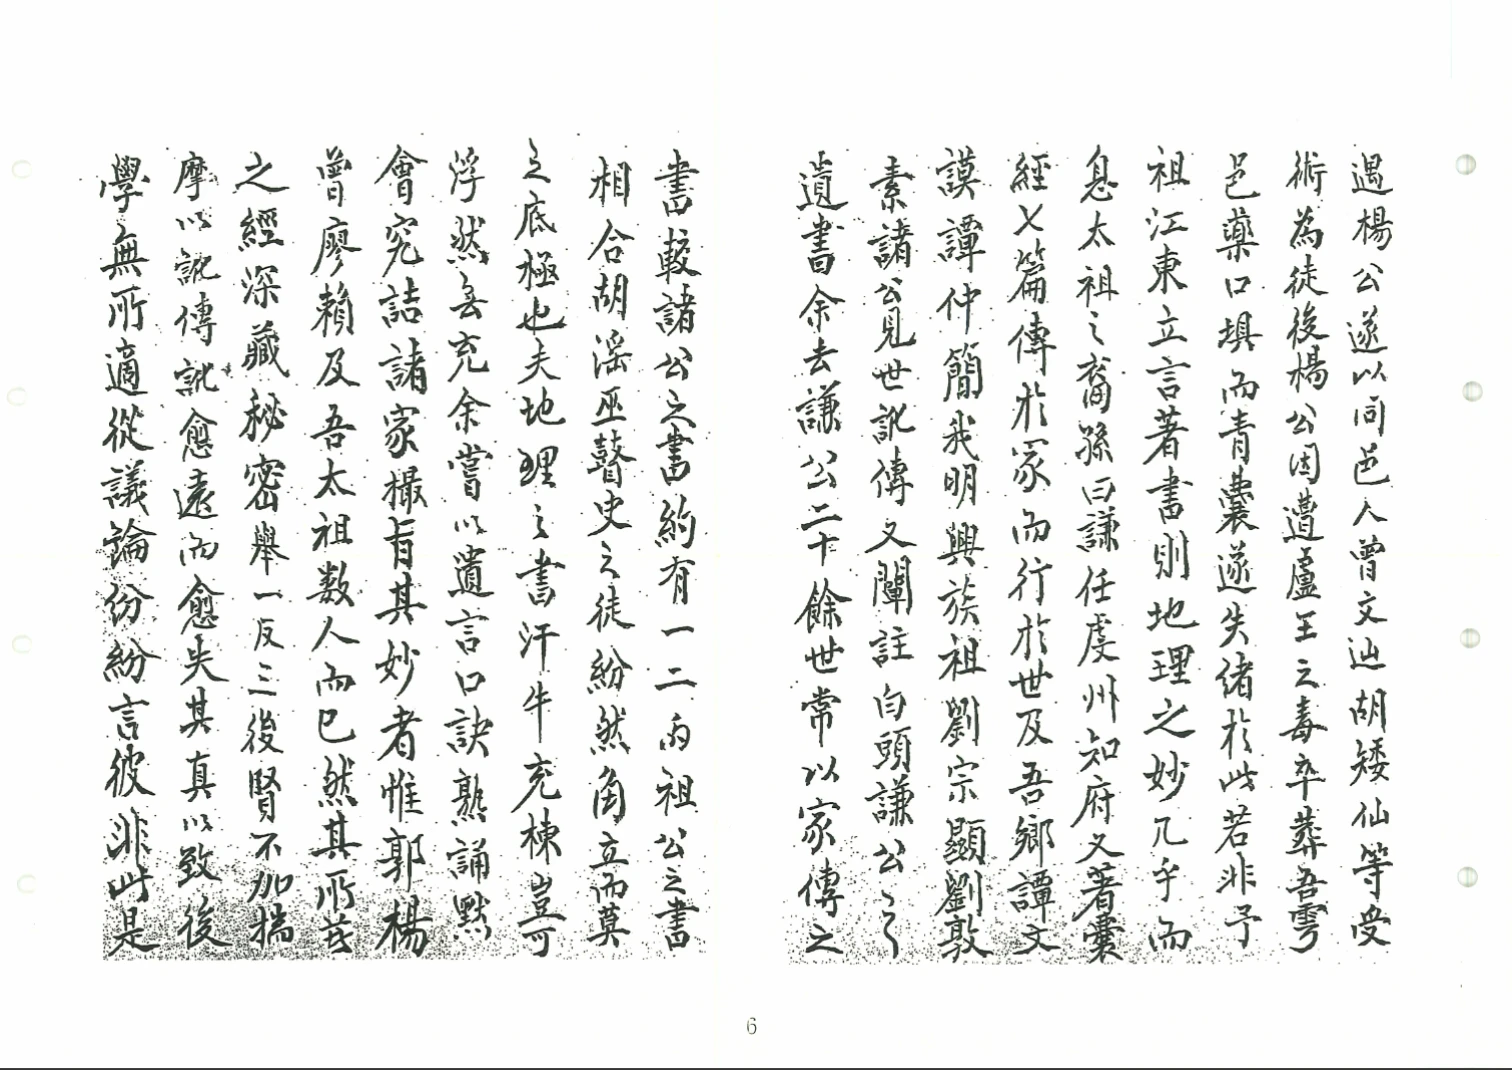 遇楊公遂以同邑人曾文辿胡矮仙等受
術為徒後楊公因遭盧王之毒卒葬吾雩
邑藥口垻而青囊遂失緒於此若非予
祖江東立言著書則地理之妙几乎而
息太祖之裔孫曰謙任虔州知府又著囊
經七篇傳於家而行於世及吾鄉譚文
謨譚仲簡我明興族祖劉宗顯劉敦
素諸公見世訛傳又闡註白頭謙公之
遺書余去謙公二十餘世常以家傳之
書較諸公之書約有一二而祖公之書
相合胡滛巫瞽史之徒紛然角立而莫
之底極也夫地理之書汗牛充棟豈可
浮然無充余嘗以遺言口訣熟誦默
會究詰諸家撮旨其妙者惟郭楊
曾廖賴及吾太祖数人而已然其所
之經深藏秘密舉一反三後賢不加揣
摩以訛傳訛愈遠而愈失其真以致後
學無所適從議論份紛言彼非此是
6